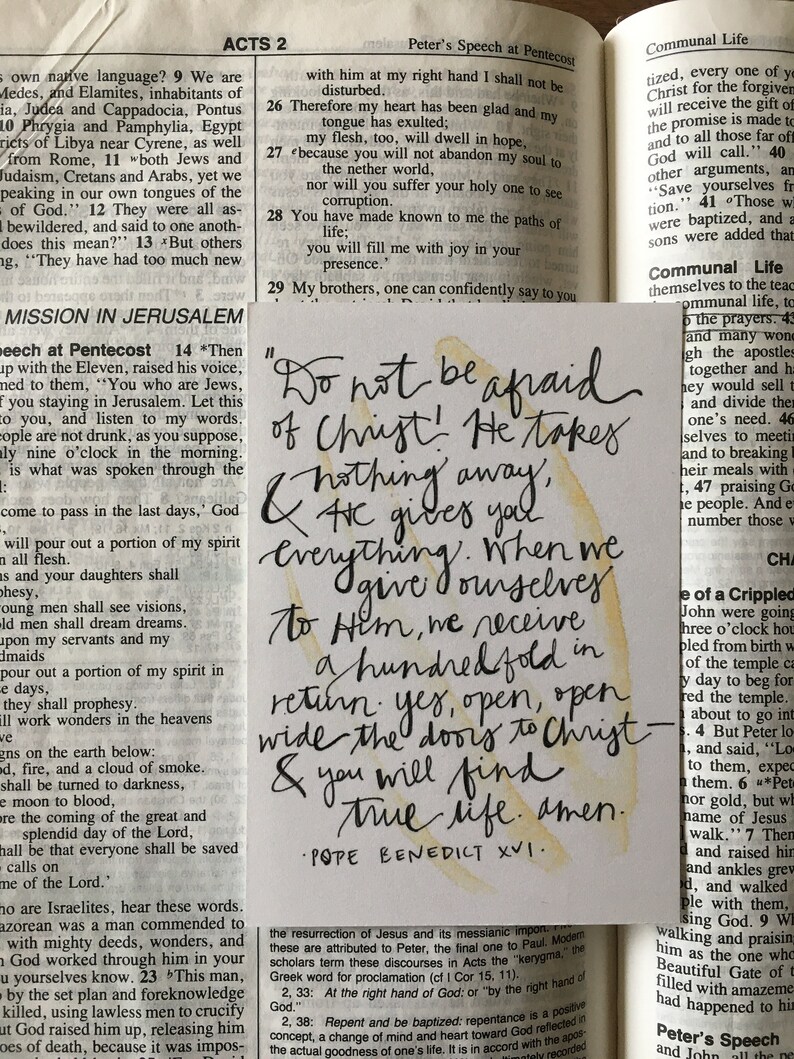 ACTS 2
Peter's Speech at Pentecost
own native language? 9 We are
Medes, and Elamites, inhabitants of
Judea and Cappadocia, Pontus
10 Phrygia and Pamphylia, Egypt
of Libya near Cyrene, as well
from Rome, 11 ʷboth Jews and
Judaism, Cretans and Arabs, yet we
speaking in our own tongues of the
of God." 12 They were all as-
bewildered, and said to one anoth-
does this mean?" 13 ˣBut others
"They have had too much new
MISSION IN JERUSALEM
Speech at Pentecost 14 *Then
up with the Eleven, raised his voice,
to them, "You who are Jews,
of you staying in Jerusalem. Let this
to you, and listen to my words.
people are not drunk, as you suppose,
only nine o'clock in the morning.
is what was spoken through the
come to pass in the last days,' God
will pour out a portion of my spirit
all flesh.
and your daughters shall
young men shall see visions,
old men shall dream dreams.
upon my servants and my
pour out a portion of my spirit in
days,
they shall prophesy.
will work wonders in the heavens
signs on the earth below:
fire, and a cloud of smoke.
shall be turned to darkness,
moon to blood,
the coming of the great and
splendid day of the Lord,
shall be that everyone shall be saved
calls on
of the Lord.'
who are Israelites, hear these words.
was a man commended to
with mighty deeds, wonders, and
God worked through him in your
you yourselves know. 23 ᵇThis man,
by the set plan and foreknowledge
killed, using lawless men to crucify
But God raised him up, releasing him
of death, because it was impos-
with him at my right hand I shall not be
disturbed.
26 Therefore my heart has been glad and my
tongue has exulted;
my flesh, too, will dwell in hope,
27 ᵉbecause you will not abandon my soul to
the nether world,
nor will you suffer your holy one to see
corruption.
28 You have made known to me the paths of
life;
you will fill me with joy in your
presence.'
29 My brothers, one can confidently say to you
"Do not be afraid
of Christ! He takes
nothing away,
& He gives you
everything. When we
give ourselves
to Him, we receive
a hundredfold in
return. yes, open, open
wide the doors to Christ—
& you will find
true life. amen.
·POPE BENEDICT XVI·
the resurrection of Jesus and its messianic import.
these are attributed to Peter, the final to Paul. Modern
scholars term these discourses in Acts the "kerygma," the
Greek word for proclamation (cf I Cor 15, 11).
2, 33: At the right hand of God: or "by the right hand of
God."
2, 38: Repent and be baptized: repentance is a positive
concept, a change of mind and heart toward God reflected in
the actual goodness of one's life. It is in accord with the apos-
Communal Life
tized, every one of
Christ for the
will receive the gift of
the promise is made to
and to all those far off
God will call." 40
other arguments,
"Save yourselves
tion." 41 ᵒThose
were baptized, and
sons were added
Communal Life
themselves to the
communal life, to
the prayers. 43
and many
the apostles
together and
they would sell
and divide
one's need. 46
to
and to breaking
their meals with
47 praising
people. And
number those
of a Crippled
John were going
three o'clock
from birth
of the temple
day to beg for
the temple.
about to go
4 But Peter
and said,
to them,
them. 6 ᵘ*
nor gold, but
name of Jesus
walk." 7
and raised him
and ankles grew
and walked
with them,
God. 9
walking and praising
him as the one who
Beautiful Gate of
filled with
had happened to
Peter's Speech
and John, all the